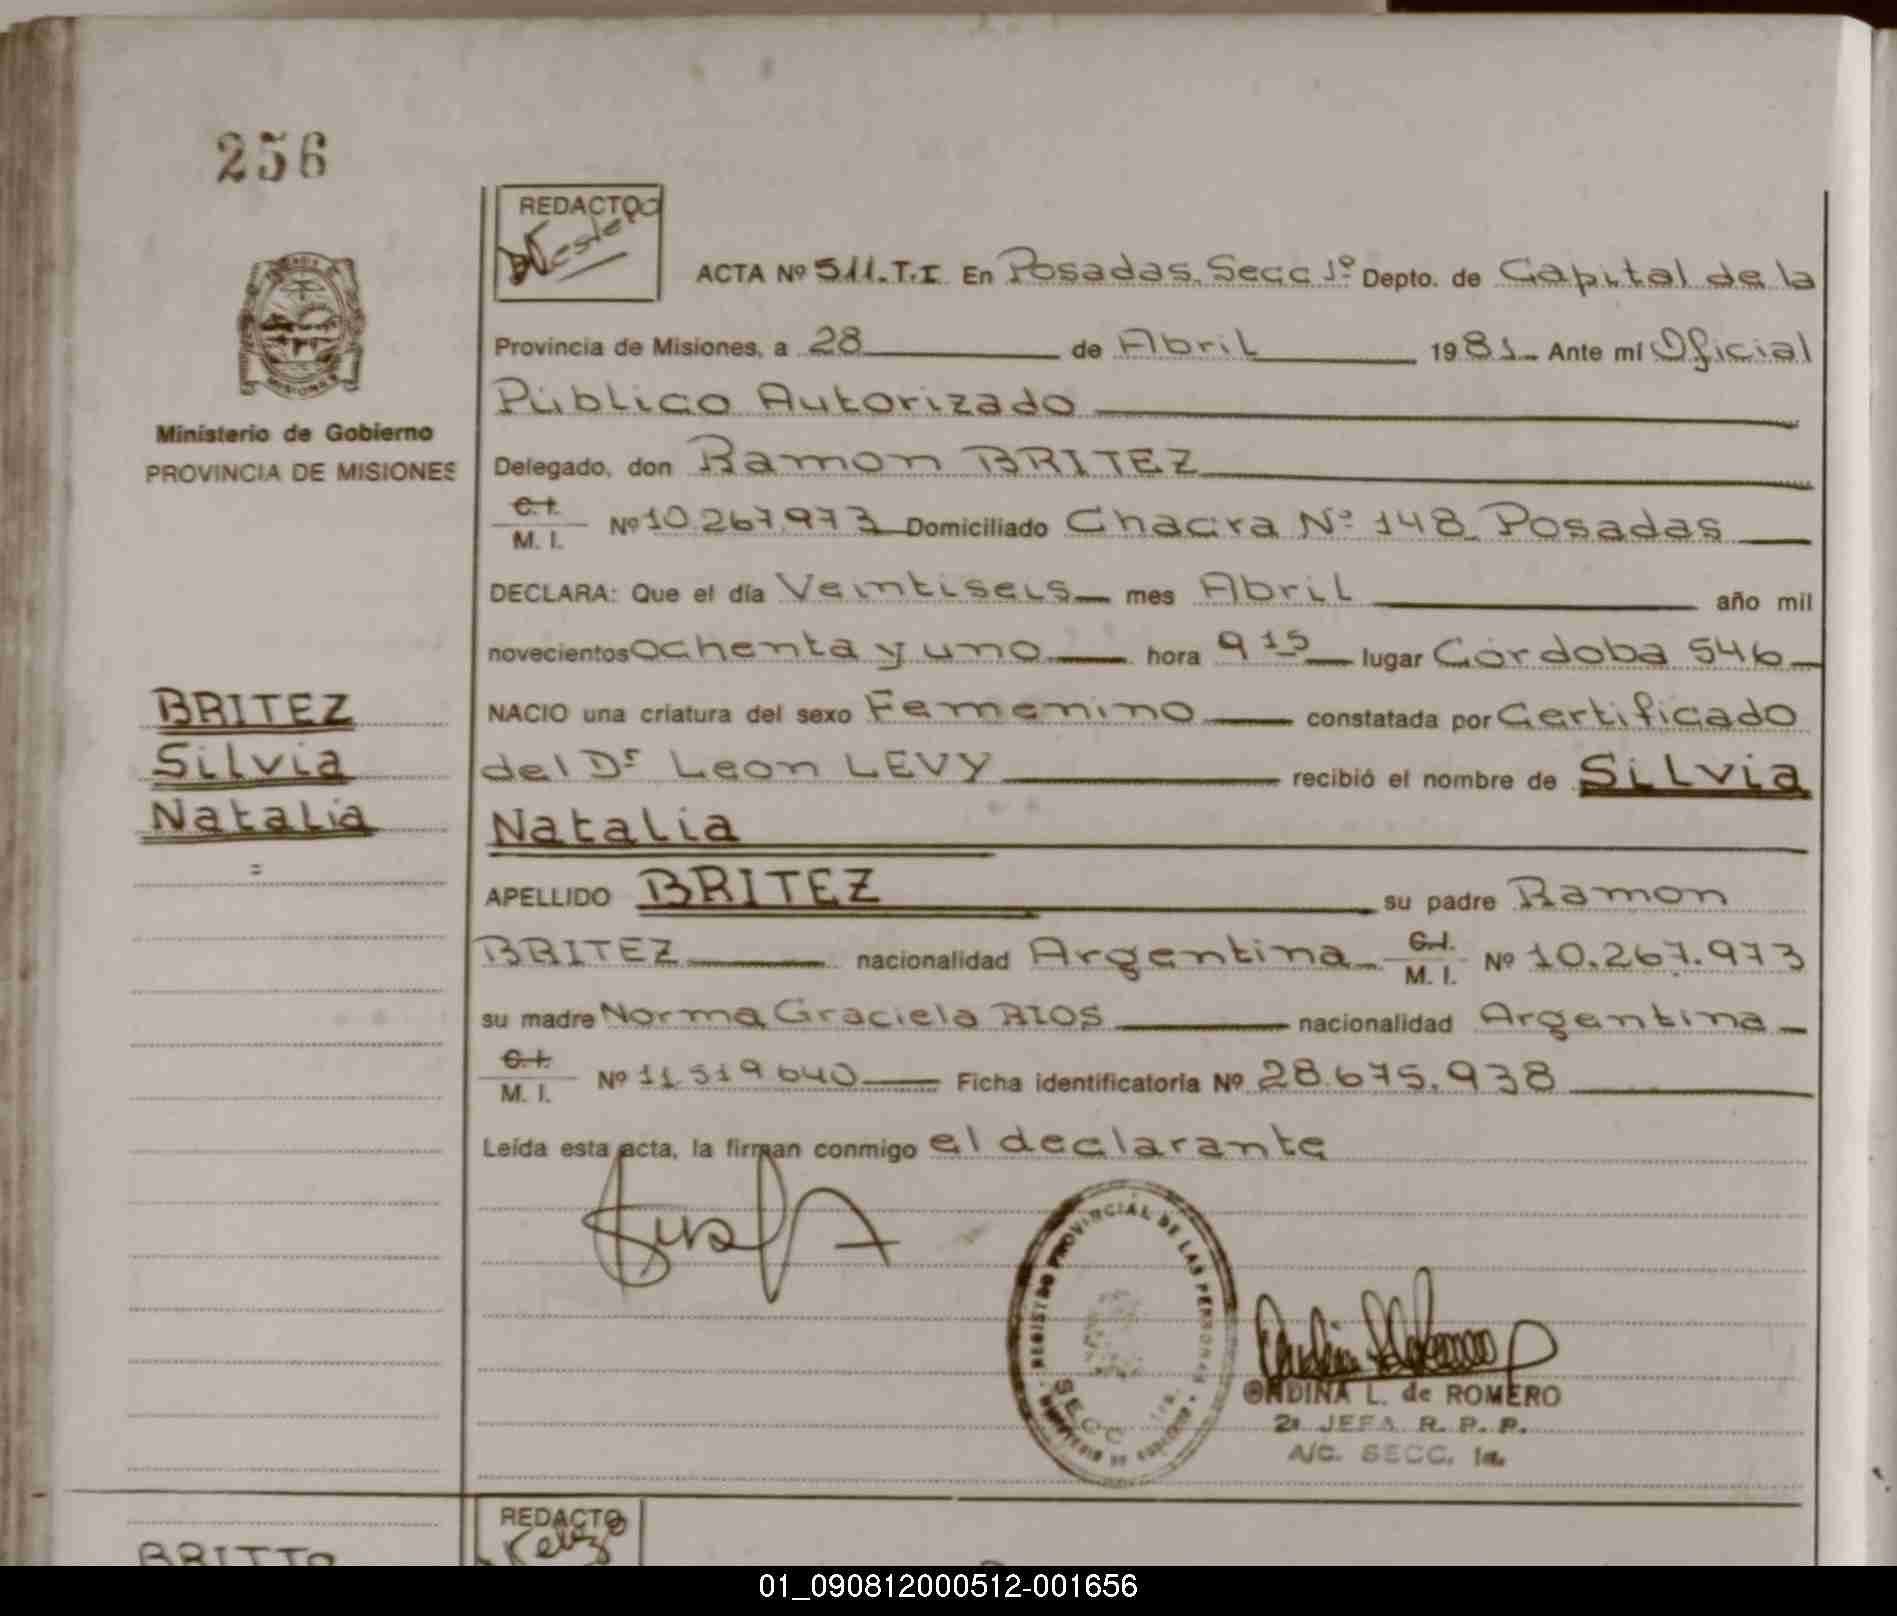 256
REDACTO
ACTA Nº 511.T.I. En Posadas, Secc 1º Depto. de Capital de la
Provincia de Misiones, a 28 de Abril 1981 Ante mí Oficial
Público Autorizado
Ministerio de Gobierno
PROVINCIA DE MISIONES
Delegado, don Ramon BRITEZ
C.I.
M. I. Nº 10.267.973 Domiciliado Chacra Nº 148 Posadas
DECLARA: Que el día Veintiseis mes Abril año mil
novecientos ochenta y uno hora 9 15 lugar Córdoba 546
BRITEZ
Silvia
Natalia
NACIO una criatura del sexo Femenino constatada por Certificado
del Dr Leon LEVY recibió el nombre de Silvia
Natalia
APELLIDO BRITEZ su padre Ramon
BRITEZ nacionalidad Argentina C.I.
M. I. Nº 10.267.973
su madre Norma Graciela RIOS nacionalidad Argentina
C.I.
M. I. Nº 11.519.640 Ficha identificatoria Nº 28.675.938
Leída esta acta, la firman conmigo el declarante
REGISTRO PROVINCIAL DE LAS PERSONAS
SECC 1ra.
ONDINA L. de ROMERO
2a JEFA R. P. P.
A/C. SECC. 1a.
REDACTO
BRITTO
01_090812000512-001656